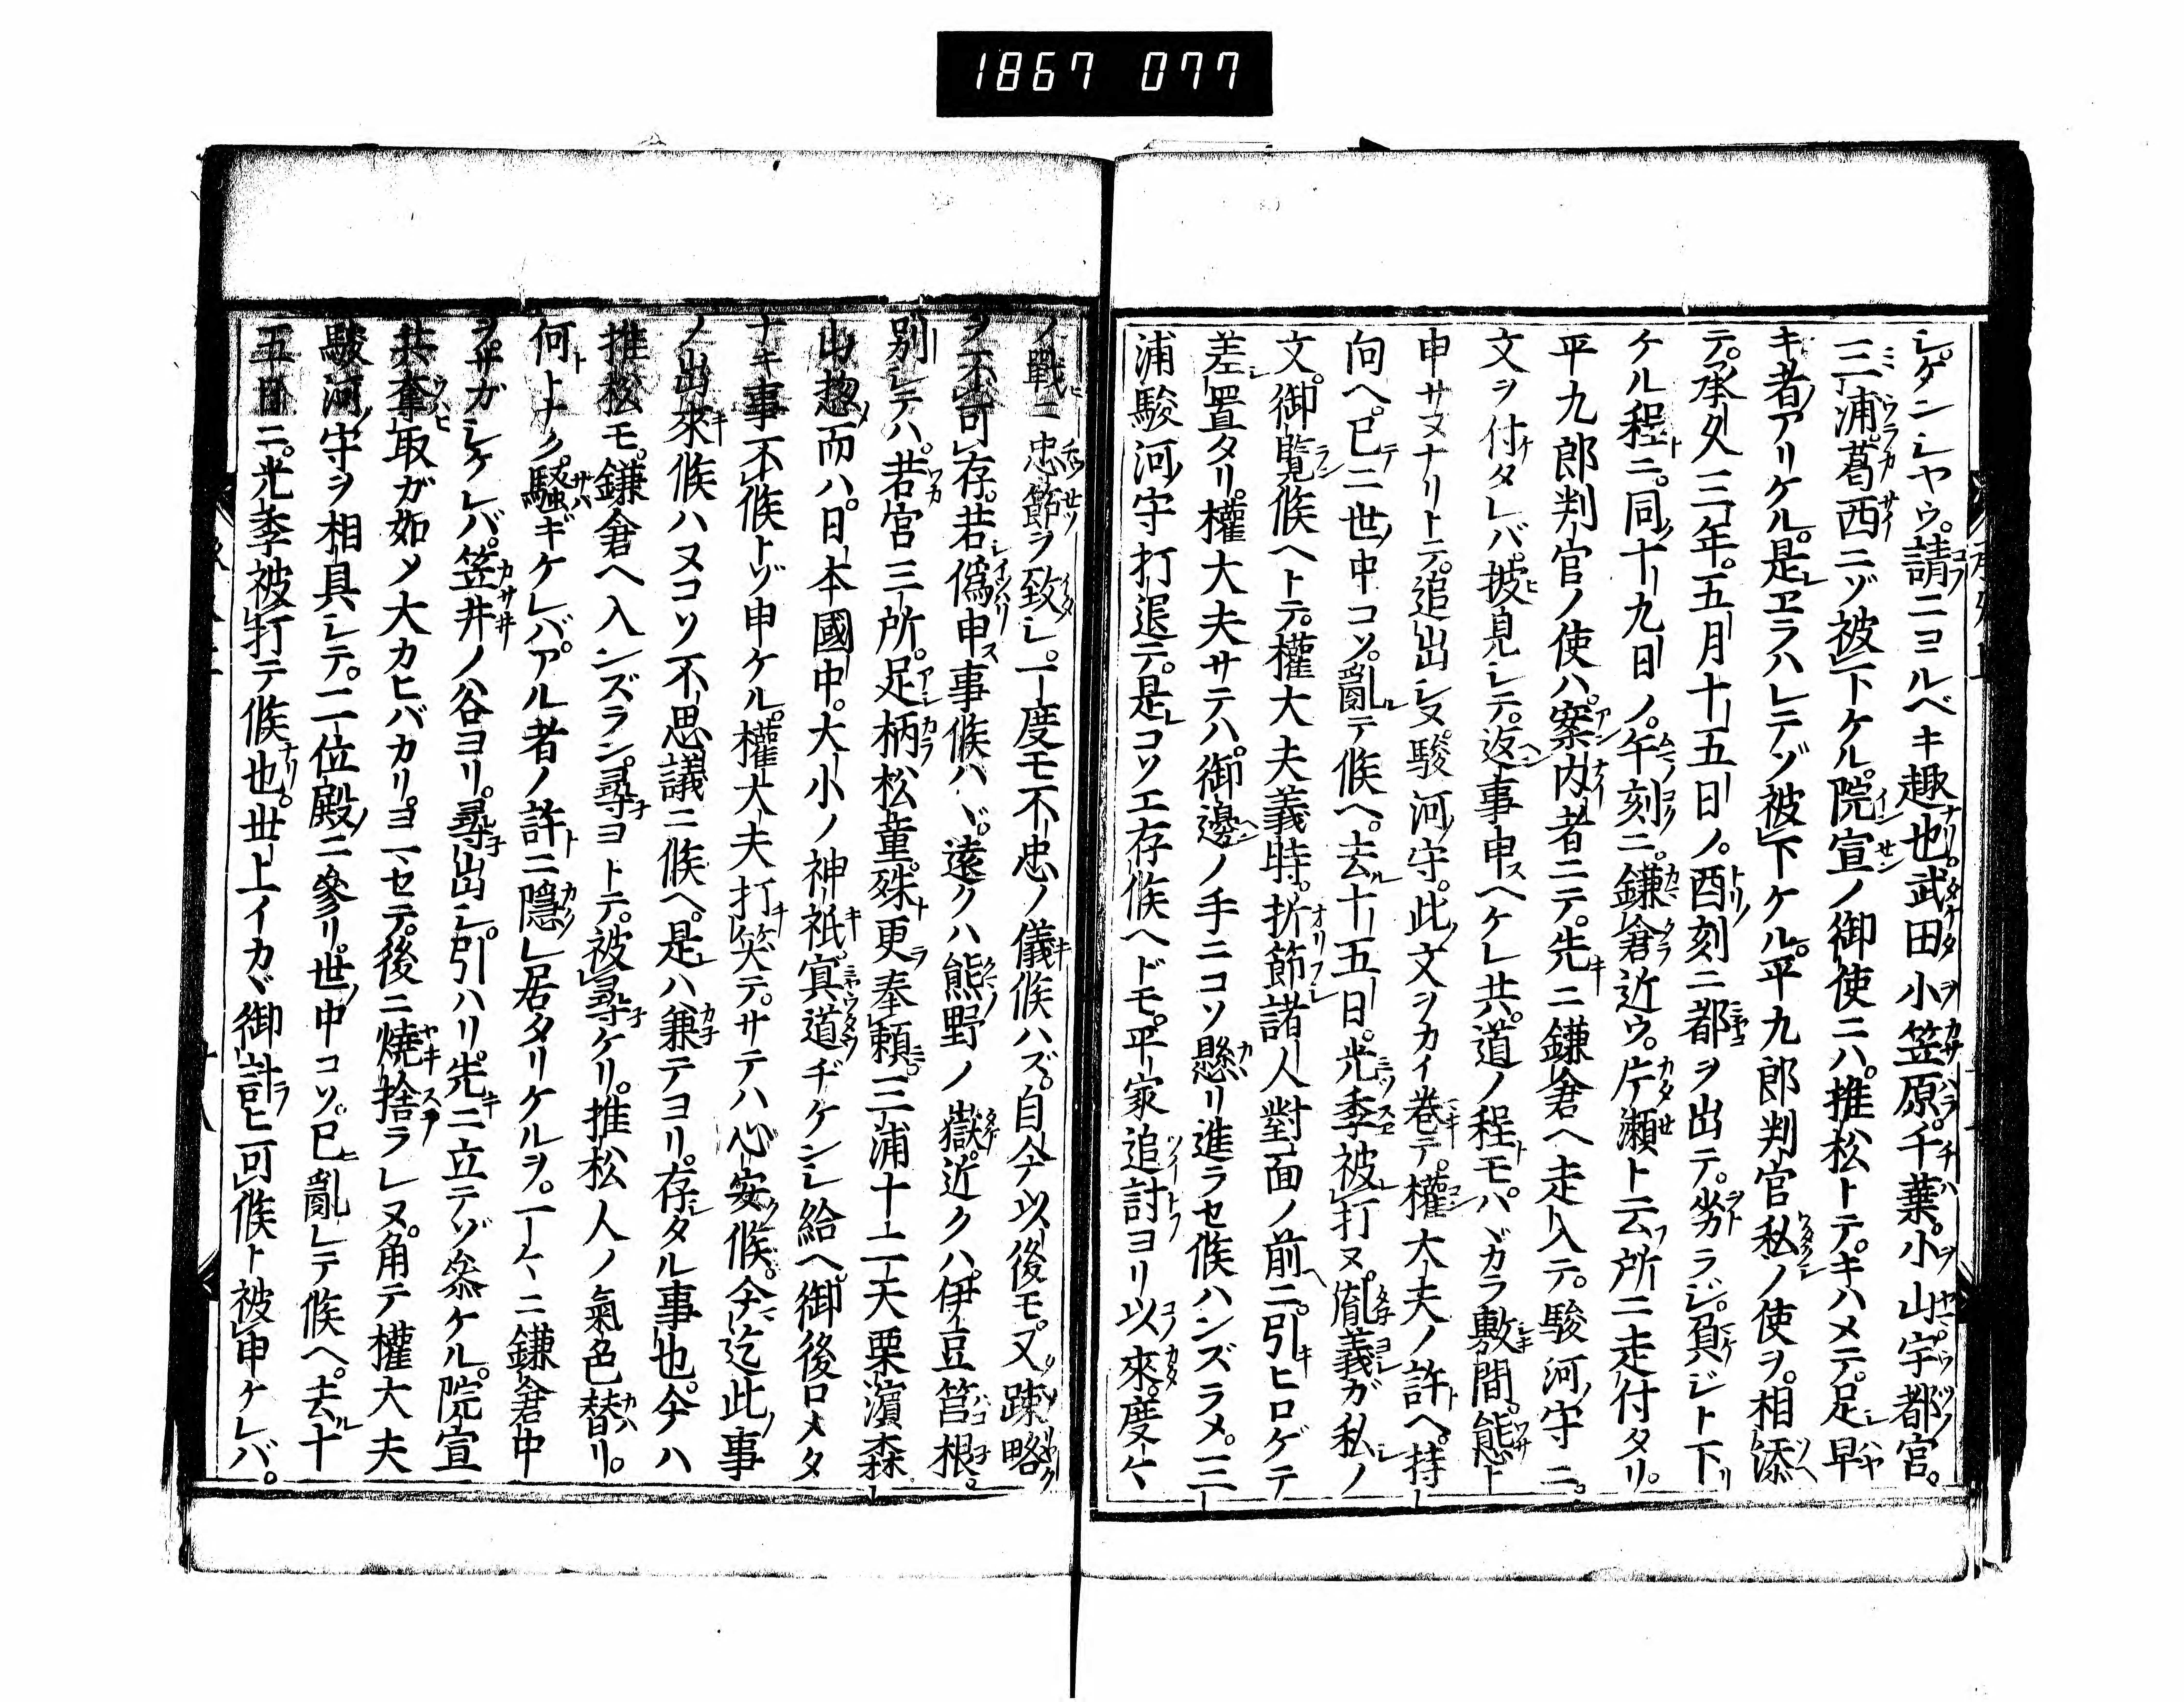 1867 077
シ。ケンシヤウ。請ニヨルベキ趣也。武田小笠原。千葉。小山宇都宮。
三浦。葛西ニゾ被下ケル。院宣ノ御使ニハ。推松トテ。キハメテ。足早
キ者アリケル。是エラハレテゾ被下ケル。平九郎判官私ノ使ヲ。相添
テ。承久三年。五月十五日ノ。酉刻ニ都ヲ出テ。劣ラジ。負ジト下リ
ケル程ニ。同十九日ノ。午刻ニ。鎌倉近ウ。片瀬ト云所ニ走付タリ。
平九郎判官ノ使ハ。案内者ニテ。先ニ鎌倉ヘ走入テ。駿河守ニ。
文ヲ付タレバ。披見シテ。返事申ヘケレ共。道ノ程モ。バヾカラ敷間。態ト
申サヌナリトテ。追出シヌ。駿河守。此文ヲカイ巻テ。權大夫ノ許ヘ。持
向ヘ。已ニ世中コソ。亂テ候ヘ。去十五日。光季被打ヌ。胤義ガ私ノ
文。御覽候ヘトテ。權大夫義時。折節諸人對面ノ前ニ。引ヒロゲテ
差置タリ。權大夫サテハ。御邊ノ手ニコソ懸リ進ラセ候ハンズラメ。三
浦駿河守打退テ。是コソエ存候ヘドモ。平家追討ヨリ以來。度々
ノ戰ニ忠節ヲ致シ。一度モ不忠ノ儀候ハズ。自今以後モ。又疎略
ヲ不可存。若僞申事候ハヾ。遠クハ熊野ノ嶽。近クハ。伊豆筥根。
別シテハ。若宮三所。足柄松童。殊更奉頼。三浦十二天栗濱森
山。惣而ハ。日本國中。大小ノ神祇。冥道ヂケンシ給ヘ。御後ロメタ
ナキ事不候トゾ申ケル。權大夫打笑テ。サテハ心安候。今迄此事
ノ出來候ハヌコソ不思議ニ候ヘ。是ハ兼テヨリ。存タル事也。今ハ
推松モ。鎌倉ヘ入ンズラン。尋ヨトテ。被尋ケリ。推松人ノ氣色替リ。
何トナク。騒ギケレバ。アル者ノ許ニ隱居タリケルヲ。一々ニ鎌倉中
ヲ。サガシケレバ。笠井ノ谷ヨリ。尋出シ。引ハリ。先ニ立テゾ參ケル。院宣
共奪取ガ如メ大カヒバカリ。ヨマセテ。後ニ燒捨ラレヌ。角テ權大夫
駿河守ヲ相具シテ。二位殿ニ參リ。世中コソ。已亂レテ候ヘ。去十
五日ニ。光季被打テ候也。世上イカヾ御計ヒ可候ト被申ケレバ。